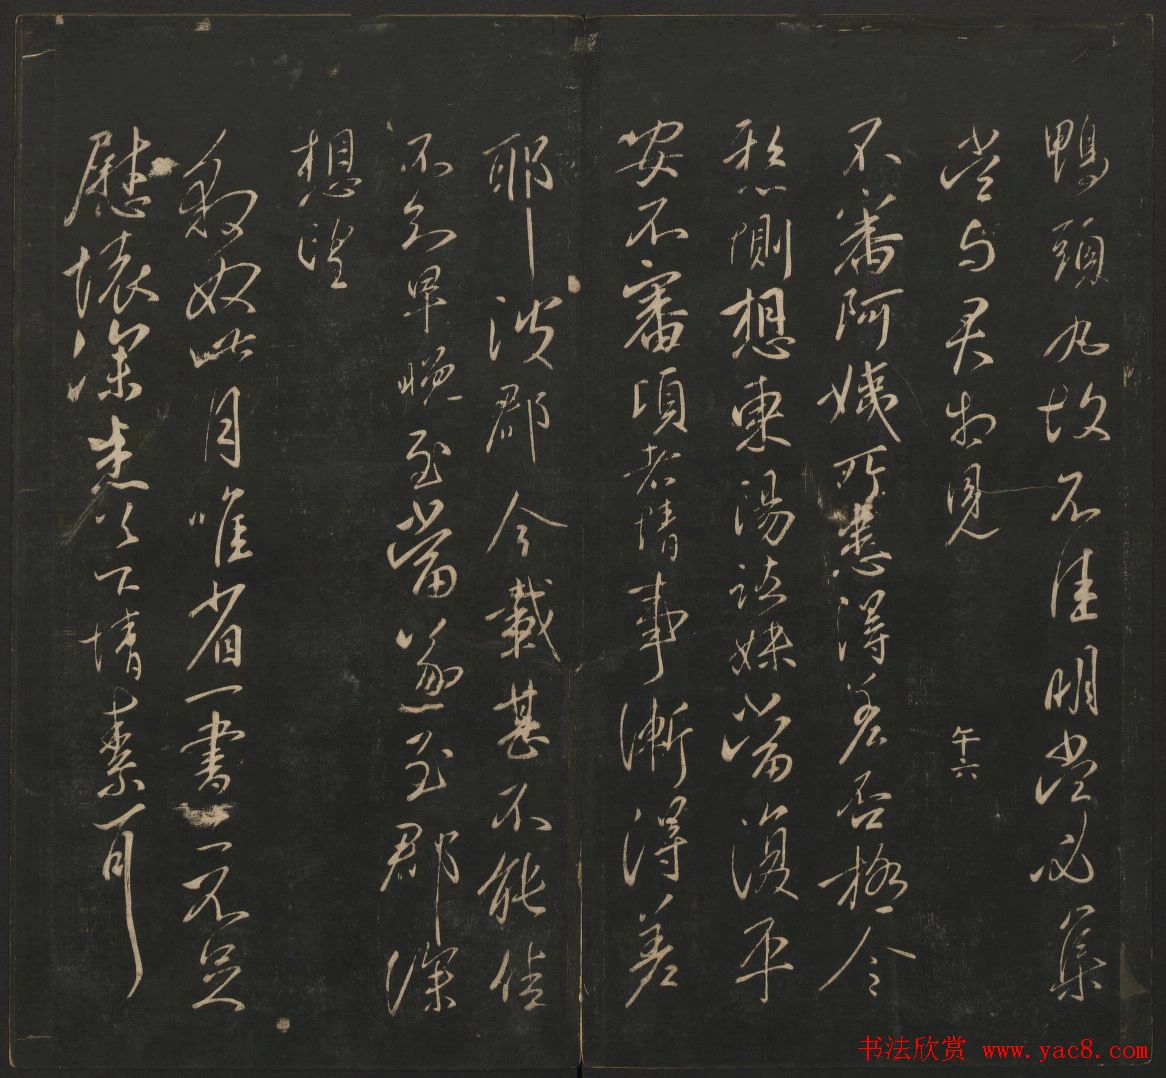 鴨頭丸故不佳明當必集
當与君相見
午六
不審阿姨所患得差否極令
懸惻想東陽諸妹當復平
安不審頃者情事漸得差
耶彼郡今載甚不能佳
不知早晚至當遂至郡深
想望
豹奴此月唯省一書亦不足
慰懷深以下情素
书法欣赏 www.yac8.com